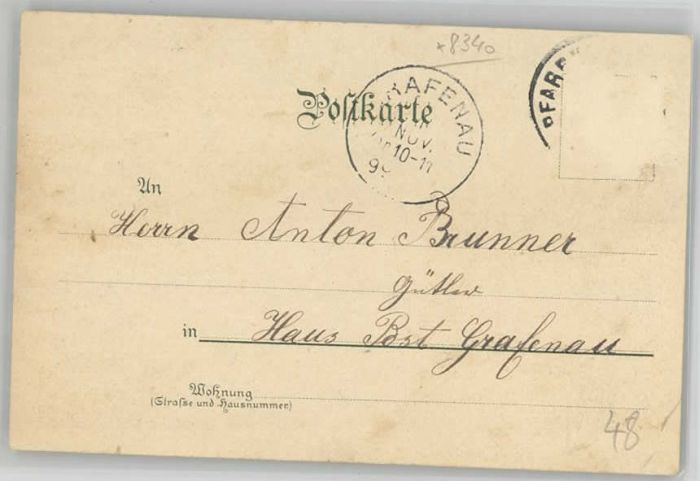 *8340
Postkarte
RAFENAU
NOV.
10-11
99
PFARR
An
Herrn Anton Brunner
Gütler
in Haus Post Grafenau
Wohnung
(Straße und Hausnummer)
48